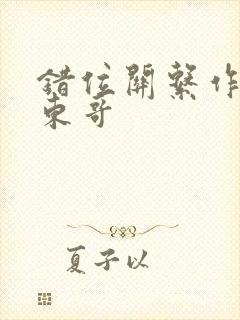 錯位關系作
東哥
夏子以